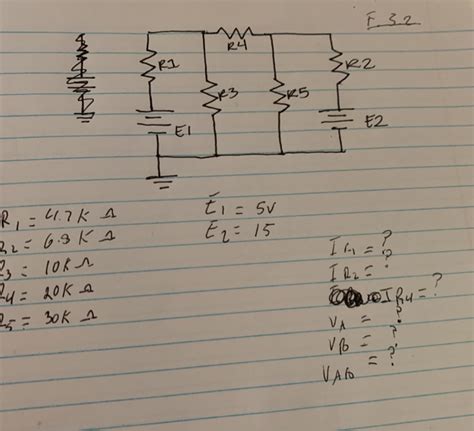 F 3.2
R4
R1
R2
R3
R5
E1
E2
R1 = 4.7K Ω
R2 = 6.8K Ω
R3 = 10K Ω
R4 = 20K Ω
R5 = 30K Ω
E1 = 5V
E2 = 15
IR1 = ?
IR2 = ?
IR4 = ?
VA = ?
VB = ?
VAB = ?